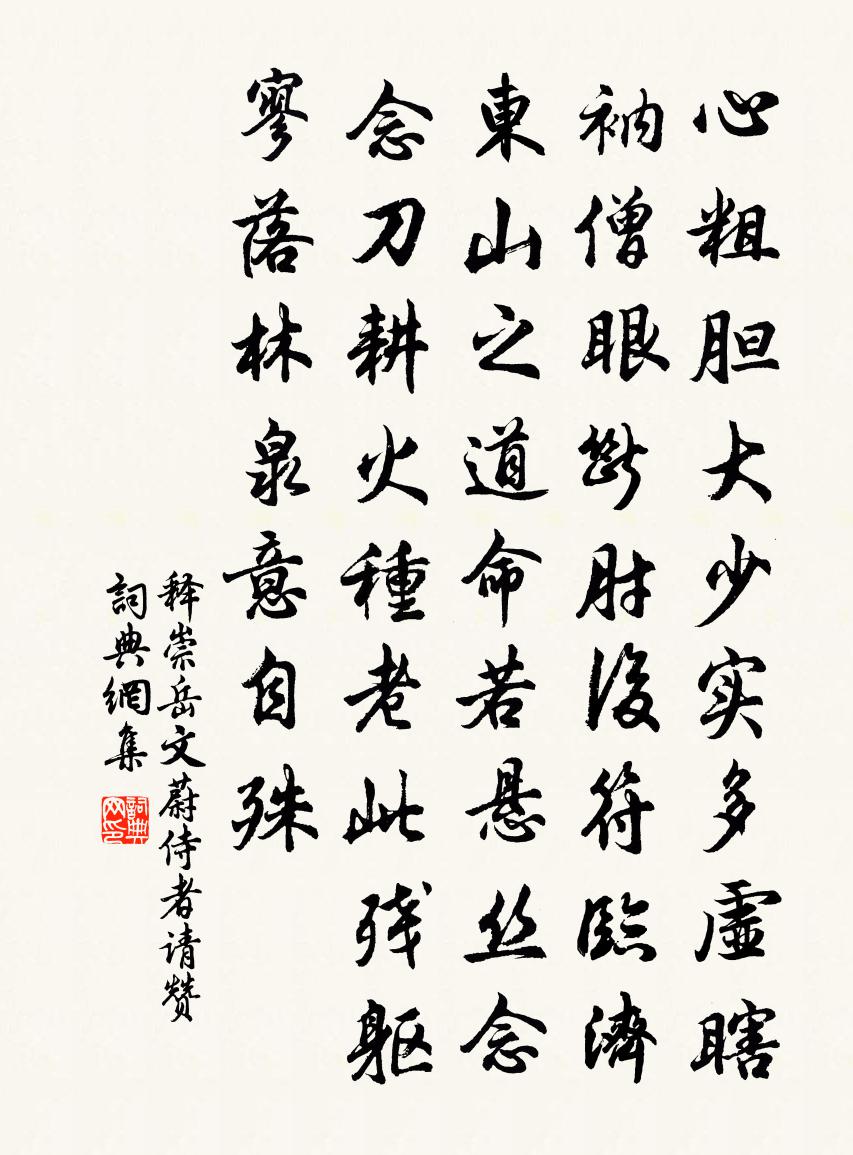 心粗胆大少实多虚瞎
衲僧眼断肘後符臨濟
東山之道命若悬丝念
念刀耕火種老此残躯
寥落林泉意自殊
释崇岳文蔚侍者请赞
詞典網集
詞典网印